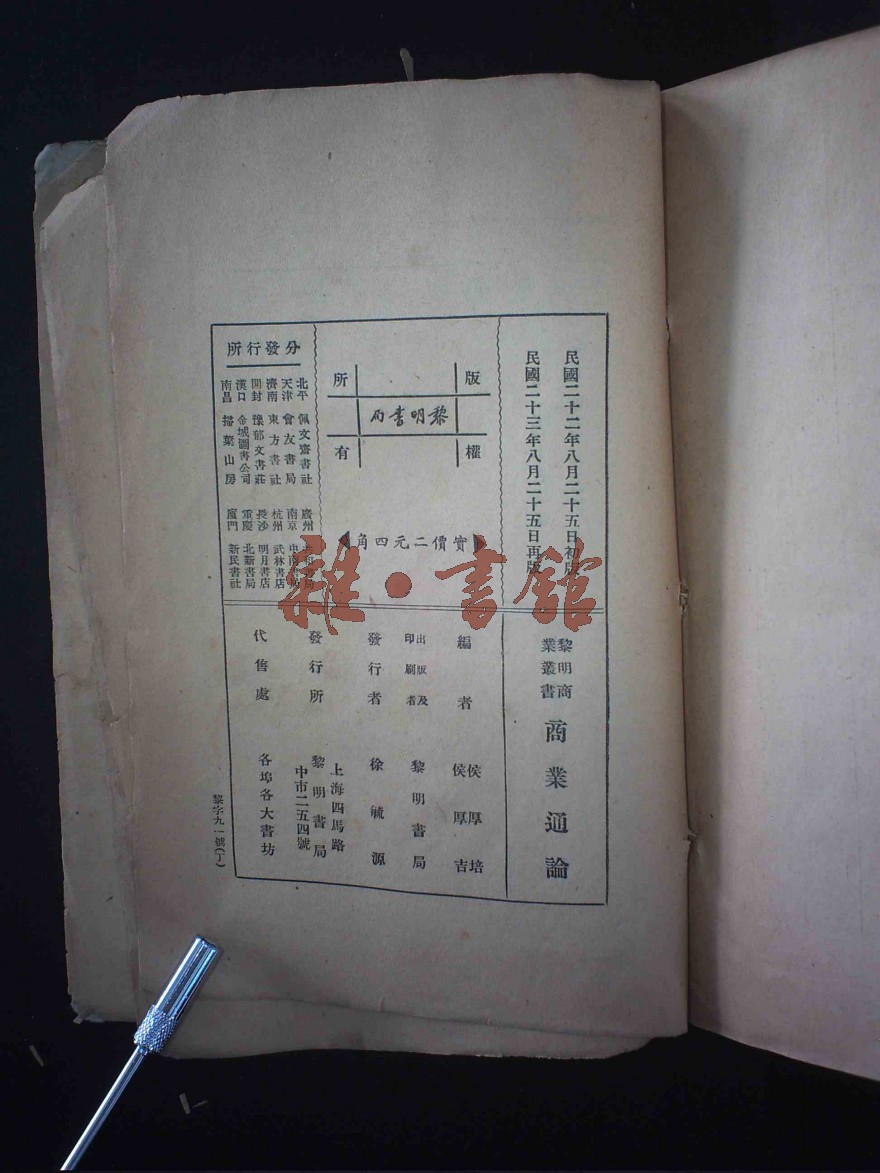 民國二十二年八月二十五日初版
民國二十三年八月二十五日再版
版權所有
黎明書局
實價二元四角
分發行所
北平 佩文齋書社
天津 會友書局
濟南 東方書社
開封 豫郁文書莊
漢口 金城圖書公司
南昌 掃葉山房
廣州 共和書局
南京 中南書局
杭州 武林書店
長沙 明月書店
重慶 北新書局
廈門 新民書社
黎明商業叢書
商業通論
編者 侯厚培
侯厚吉
出版及印刷者 黎明書局
發行者 徐毓源
發行所 上海四馬路
中市二五四號
黎明書局
代售處 各埠各大書坊
黎字九一號(丁)
雜·書館